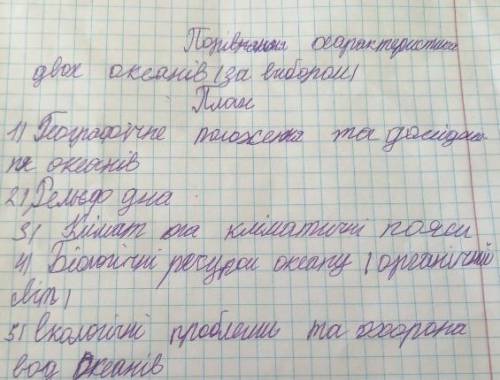 Порівняльна характеристика
двох океанів (за вибором)
План
1) Географічне положення та дослідже
ня океанів
2) Рельєф дна
3) Клімат та кліматичні пояси
4) Біологічні ресурси океану (органічний
світ)
5) Екологічні проблеми та охорона
вод океанів